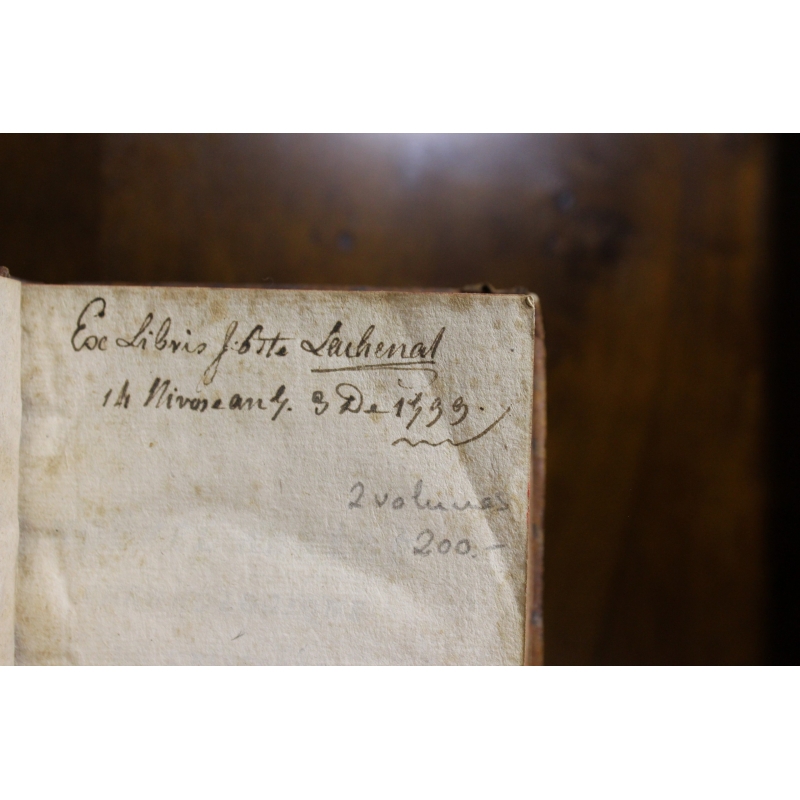 Ex Libris J. bste Lachenal
14 Nivose an 7. 3 De 1799.
2 volumes
200.-